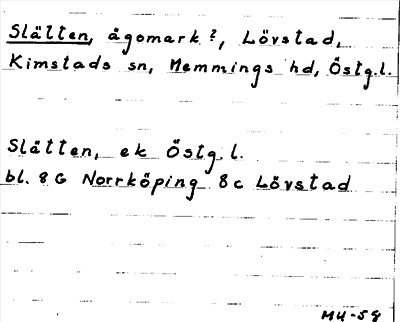 Slätten, ägomark?, Lövstad,
Kimstads sn, Memmings hd, Östg.l.
Slätten, ek Östg.l.
bl. 8G Norrköping 8c Lövstad
MU-58